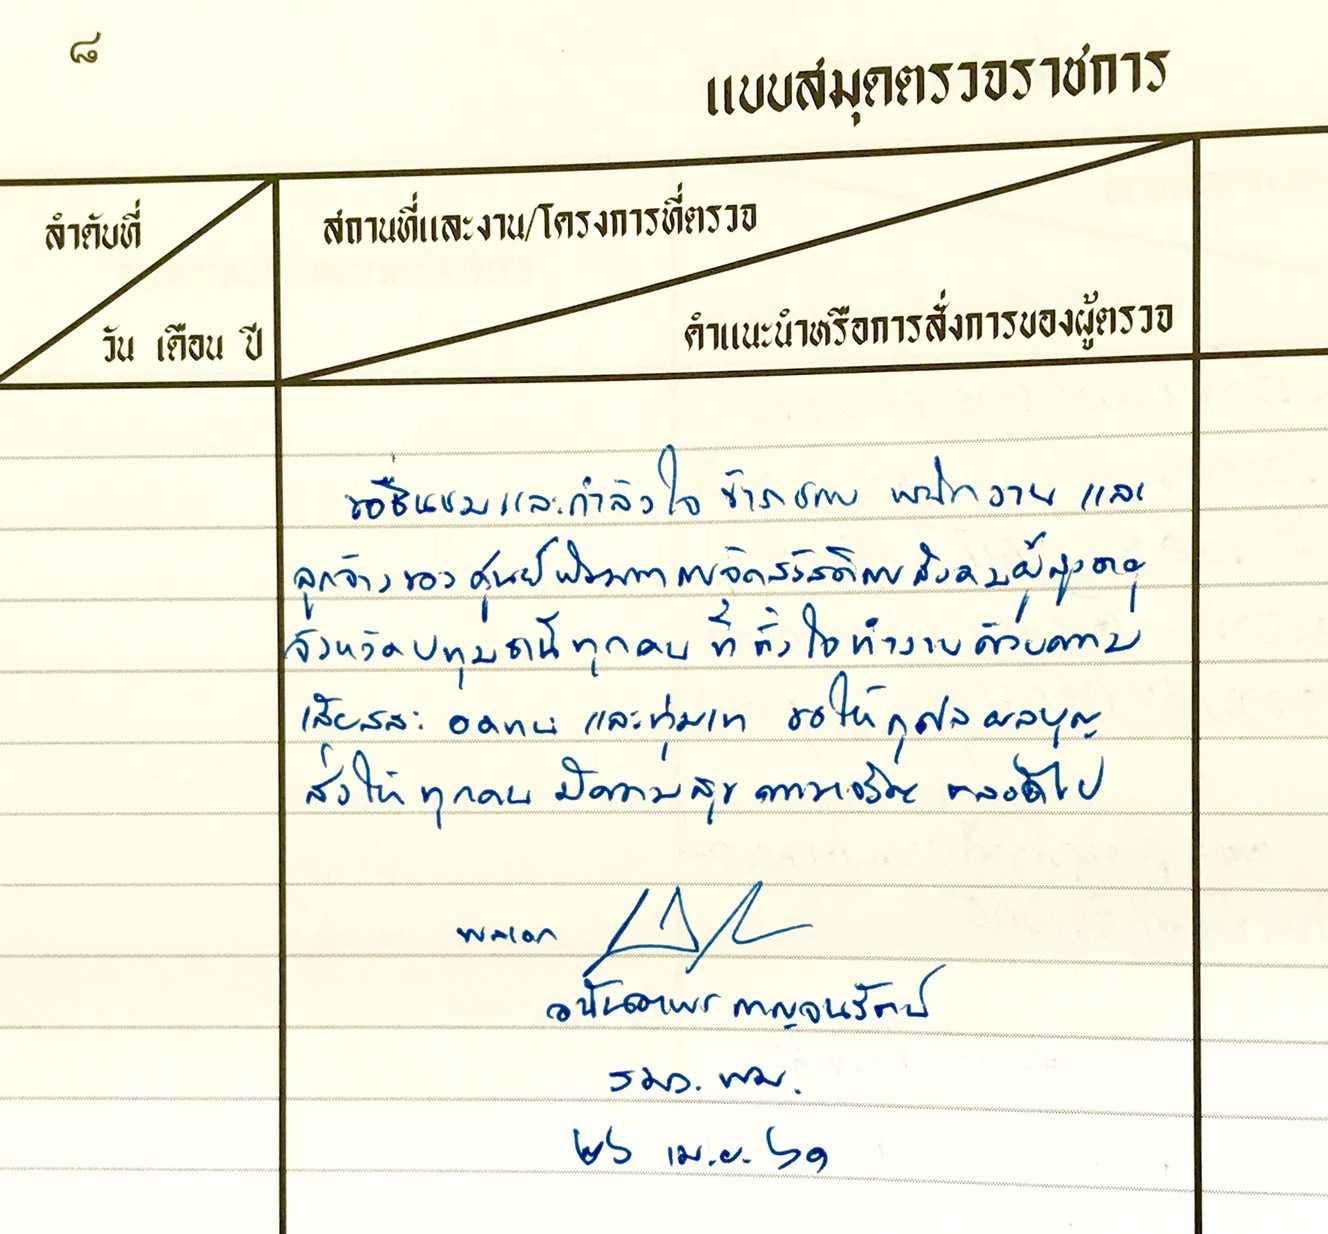 ๘
แบบสมุดตรวจราชการ
ลำดับที่
สถานที่และงาน/โครงการที่ตรวจ
วัน เดือน ปี
คำแนะนำหรือการสั่งการของผู้ตรวจ
ขอชื่นชมและกำลังใจ ข้าราชการ พนักงาน และ
ลูกจ้างของ ศูนย์พัฒนาการจัดสวัสดิการสังคมผู้สูงอายุ
จังหวัดปทุมธานีทุกคน ที่ตั้งใจทำงานด้วยความ
เสียสละ อดทน และทุ่มเท ขอให้กุศลผลบุญ
ส่งให้ทุกคน มีความสุข ความเจริญ ตลอดไป
พลเอก
อนันตพร กาญจนรัตน์
รมว. พม.
๒๖ เม.ย. ๖๑